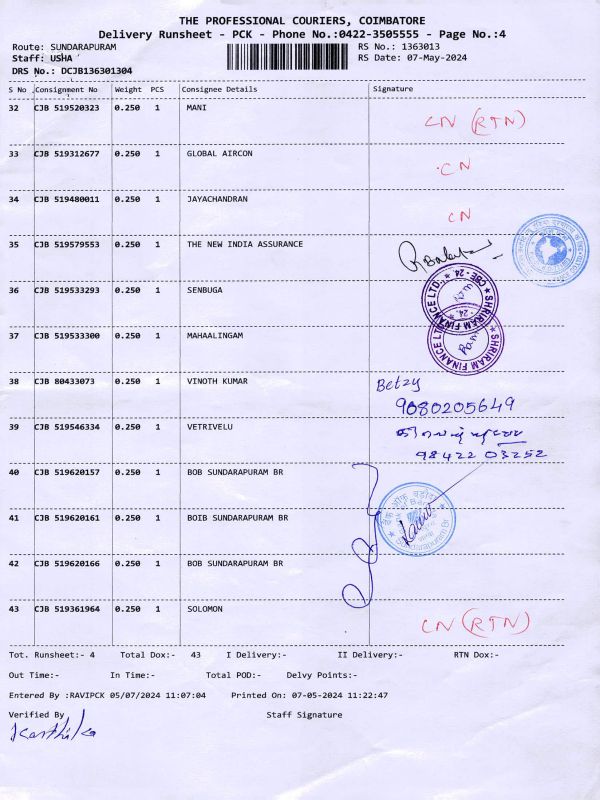 THE PROFESSIONAL COURIERS, COIMBATORE
Delivery Runsheet - PCK - Phone No.:0422-3505555 - Page No.:4
Route: SUNDARAPURAM
RS No.: 1363013
Staff: USHA
RS Date: 07-May-2024
DRS No.: DCJB136301304
S No Consignment No Weight PCS Consignee Details Signature
32 CJB 519520323 0.250 1 MANI CN (RTN)
33 CJB 519312677 0.250 1 GLOBAL AIRCON CN
34 CJB 519480011 0.250 1 JAYACHANDRAN CN
35 CJB 519579553 0.250 1 THE NEW INDIA ASSURANCE
36 CJB 519533293 0.250 1 SENBUGA SHRIRAM FINANCE LTD., CBE-24
37 CJB 519533300 0.250 1 MAHAALINGAM SHRIRAM FINANCE LTD
38 CJB 80433073 0.250 1 VINOTH KUMAR Betzy
9080205649
39 CJB 519546334 0.250 1 VETRIVELU
98422 03252
40 CJB 519620157 0.250 1 BOB SUNDARAPURAM BR
41 CJB 519620161 0.250 1 BOIB SUNDARAPURAM BR Sundarapuram Br
42 CJB 519620166 0.250 1 BOB SUNDARAPURAM BR
43 CJB 519361964 0.250 1 SOLOMON CN (RTN)
Tot. Runsheet:- 4 Total Dox:- 43 I Delivery:- II Delivery:- RTN Dox:-
Out Time:- In Time:- Total POD:- Delvy Points:-
Entered By :RAVIPCK 05/07/2024 11:07:04 Printed On: 07-05-2024 11:22:47
Verified By Staff Signature
Karthika